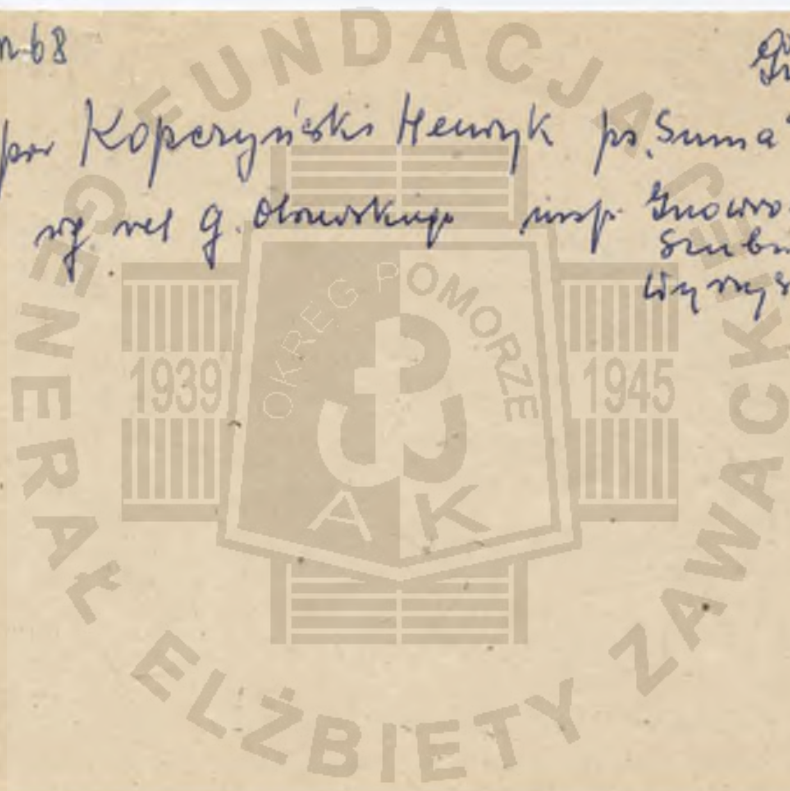 68
por Kopczyński Henryk ps. „Suma"
wg rel G. Olszewskiego insp. Inowro
Szubi
Wyrzys
FUNDACJA
GENERAŁ ELŻBIETY ZAWACKIEJ
OKRĘG POMORZE
1939
1945
A K